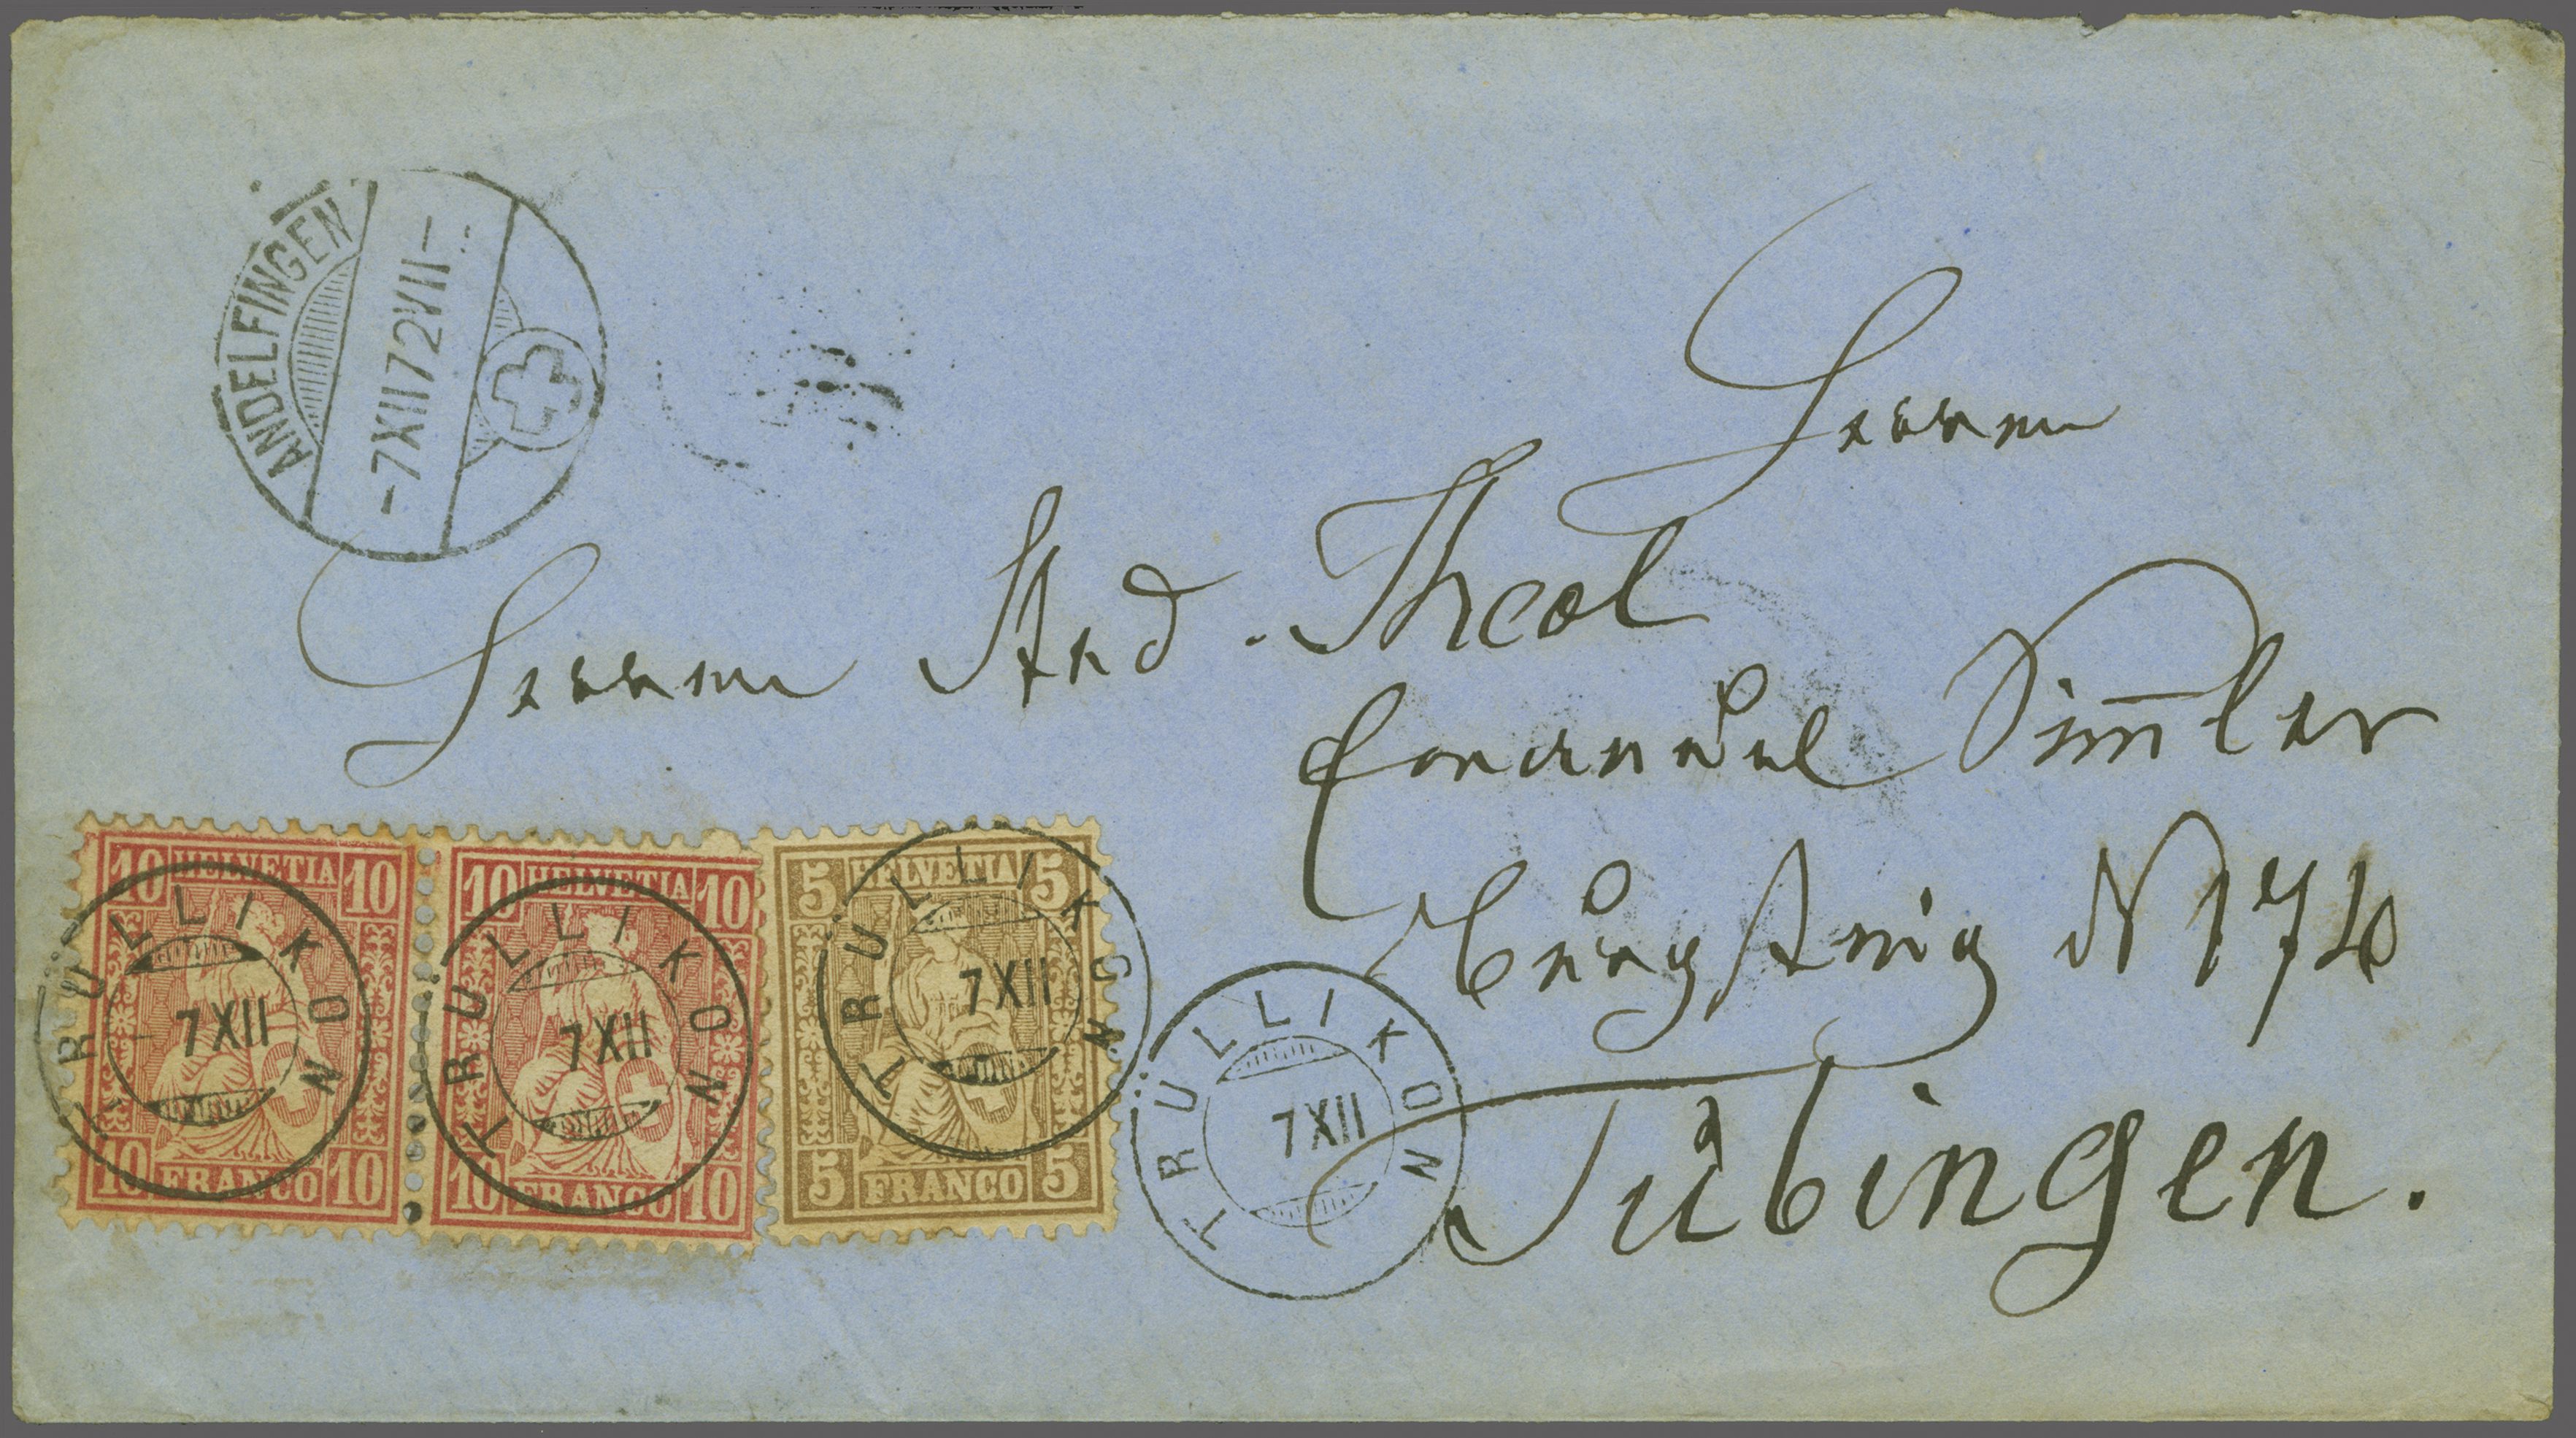 ANDELFINGEN
-7XII72VII-
Herrn
Herrn Stud. Theol
Emanuel Sim̅ler
Burgsteig N 174
Tübingen.
10 HELVETIA 10
10 FRANCO 10
TRÜLLIKON
7XII
10 HELVETIA 10
10 FRANCO 10
TRÜLLIKON
7XII
5 HELVETIA 5
5 FRANCO 5
TRÜLLIKON
7XII
TRÜLLIKON
7XII